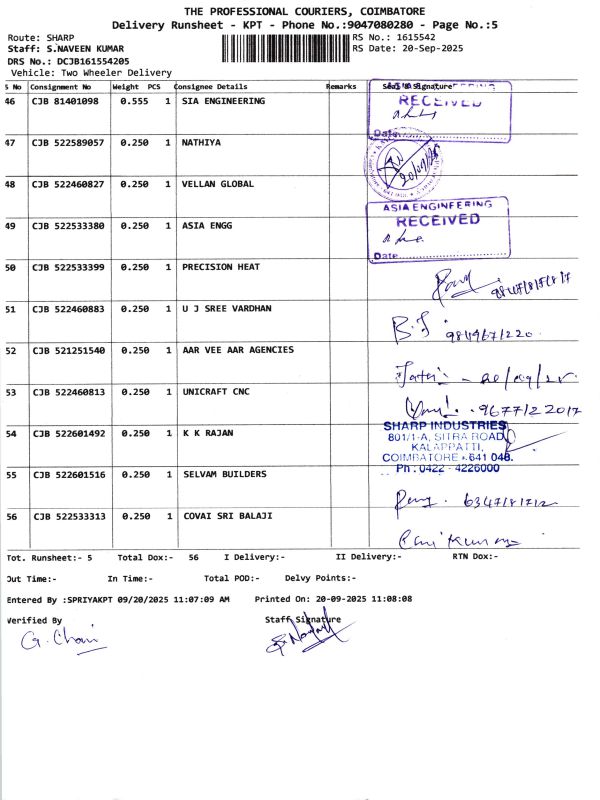 THE PROFESSIONAL COURIERS, COIMBATORE
Delivery Runsheet - KPT - Phone No.:9047080280 - Page No.:5
Route: SHARP RS No.: 1615542
Staff: S.NAVEEN KUMAR RS Date: 20-Sep-2025
DRS No.: DCJB161554205
Vehicle: Two Wheeler Delivery
S No Consignment No Weight PCS Consignee Details Remarks Seal & Signature
46 CJB 81401098 0.555 1 SIA ENGINEERING
RECEIVED
Date
47 CJB 522589057 0.250 1 NATHIYA
20/09/25
48 CJB 522460827 0.250 1 VELLAN GLOBAL
ASIA ENGINEERING
RECEIVED
49 CJB 522533380 0.250 1 ASIA ENGG
Date
50 CJB 522533399 0.250 1 PRECISION HEAT
51 CJB 522460883 0.250 1 U J SREE VARDHAN
9849671220
52 CJB 521251540 0.250 1 AAR VEE AAR AGENCIES
53 CJB 522460813 0.250 1 UNICRAFT CNC
9677122017
SHARP INDUSTRIES
54 CJB 522601492 0.250 1 K K RAJAN 801/1-A, SITRA ROAD
KALAPPATTI,
COIMBATORE - 641 048.
Ph : 0422 - 4226000
55 CJB 522601516 0.250 1 SELVAM BUILDERS
56 CJB 522533313 0.250 1 COVAI SRI BALAJI
Tot. Runsheet:- 5 Total Dox:- 56 I Delivery:- II Delivery:- RTN Dox:-
Out Time:- In Time:- Total POD:- Delvy Points:-
Entered By :SPRIYAKPT 09/20/2025 11:07:09 AM Printed On: 20-09-2025 11:08:08
Verified By Staff Signature